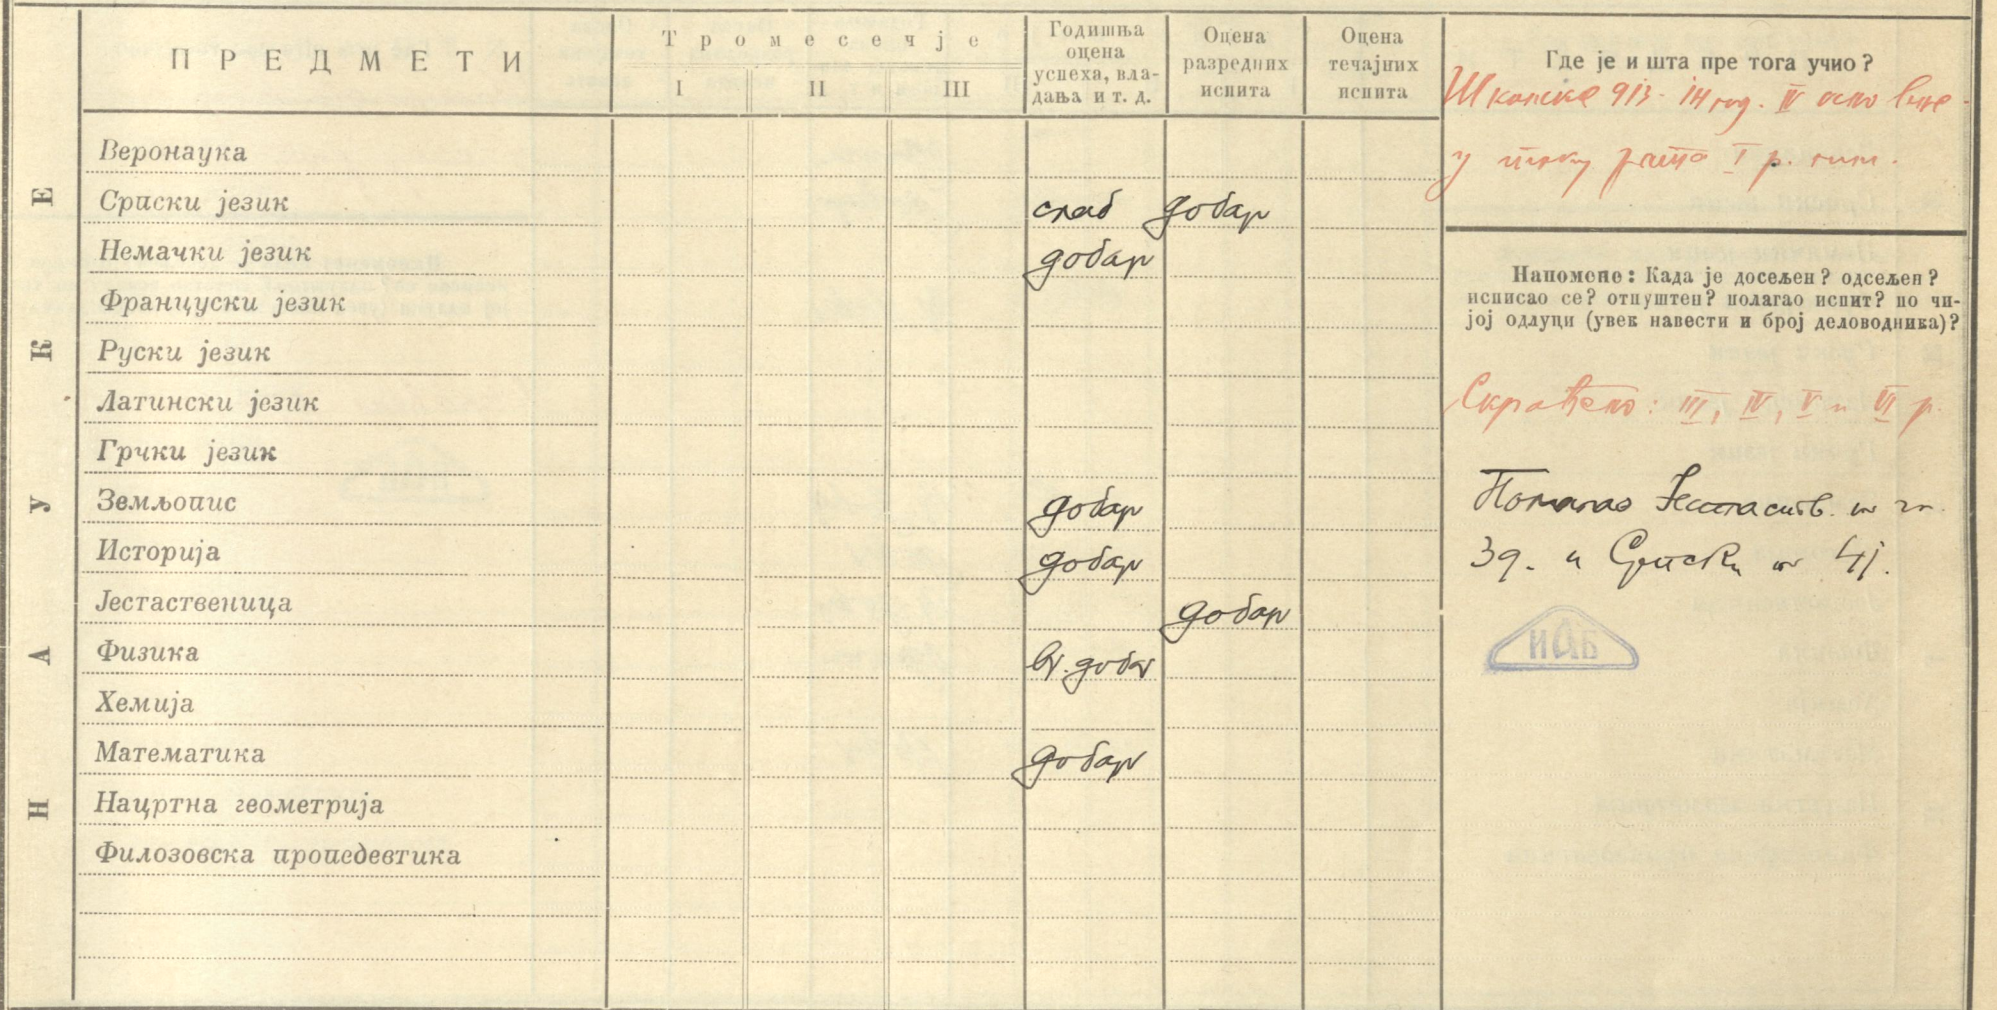 ПРЕДМЕТИ
Тромесечје
I
II
III
Годишња
оцена
успеха, вла-
дања и т. д.
Оцена
разредних
испита
Оцена
течајних
испита
НАУКЕ
Веронаука
Српски језик слаб добар
Немачки језик добар
Француски језик
Руски језик
Латински језик
Грчки језик
Земљопис добар
Историја добар
Јестаственица добар
Физика вр. добар
Хемија
Математика добар
Нацртна геометрија
Филозовска пропедевтика
Где је и шта пре тога учио?
Школске 913-14 год. IV основне
у току рата I р. гим.
Напомене: Када је досељен? одсељен?
исписао се? отпуштен? полагао испит? по чи-
јој одлуци (увек навести и број деловодника)?
Скраћено: III, IV, V и VI р.
Полагао Јестаств.
3д. и Српски 4ј.
ИАБ